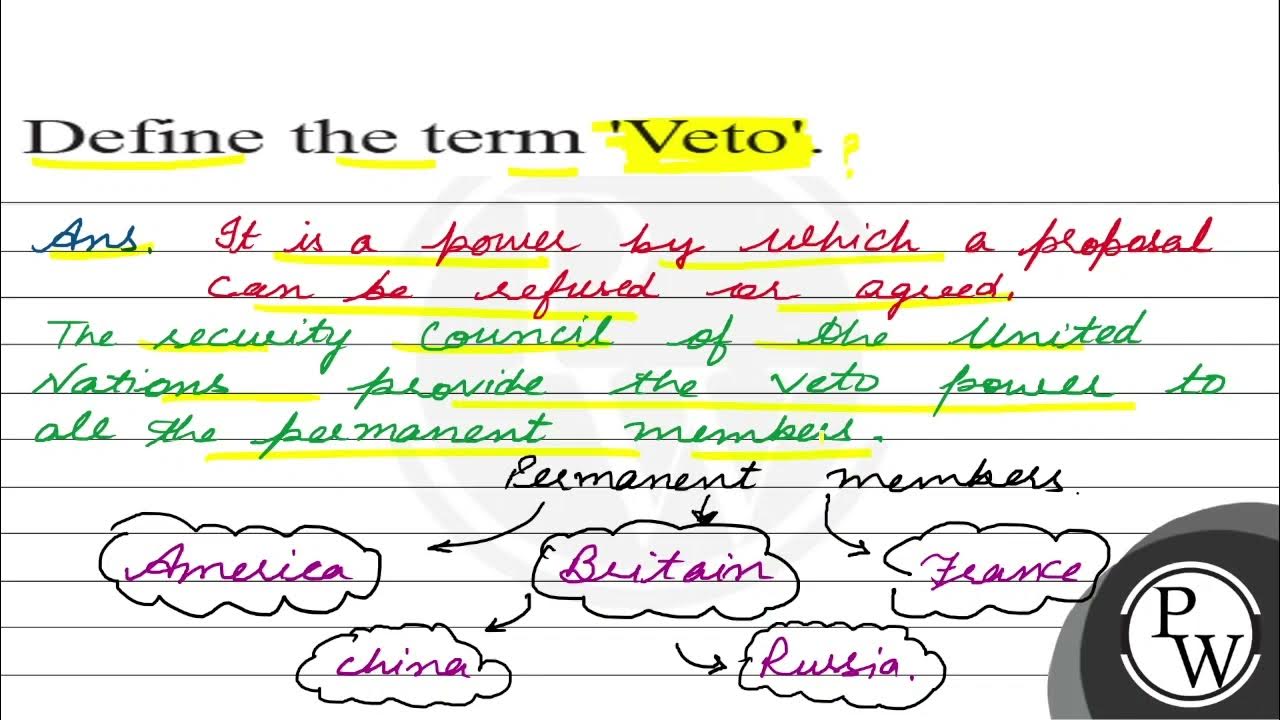 Define the term 'Veto'. ?
Ans. It is a power by which a proposal
can be refused or agreed.
The security council of the United
Nations provide the veto power to
all the permanent members.
Permanent members.
America Britain France
China Russia.
PW